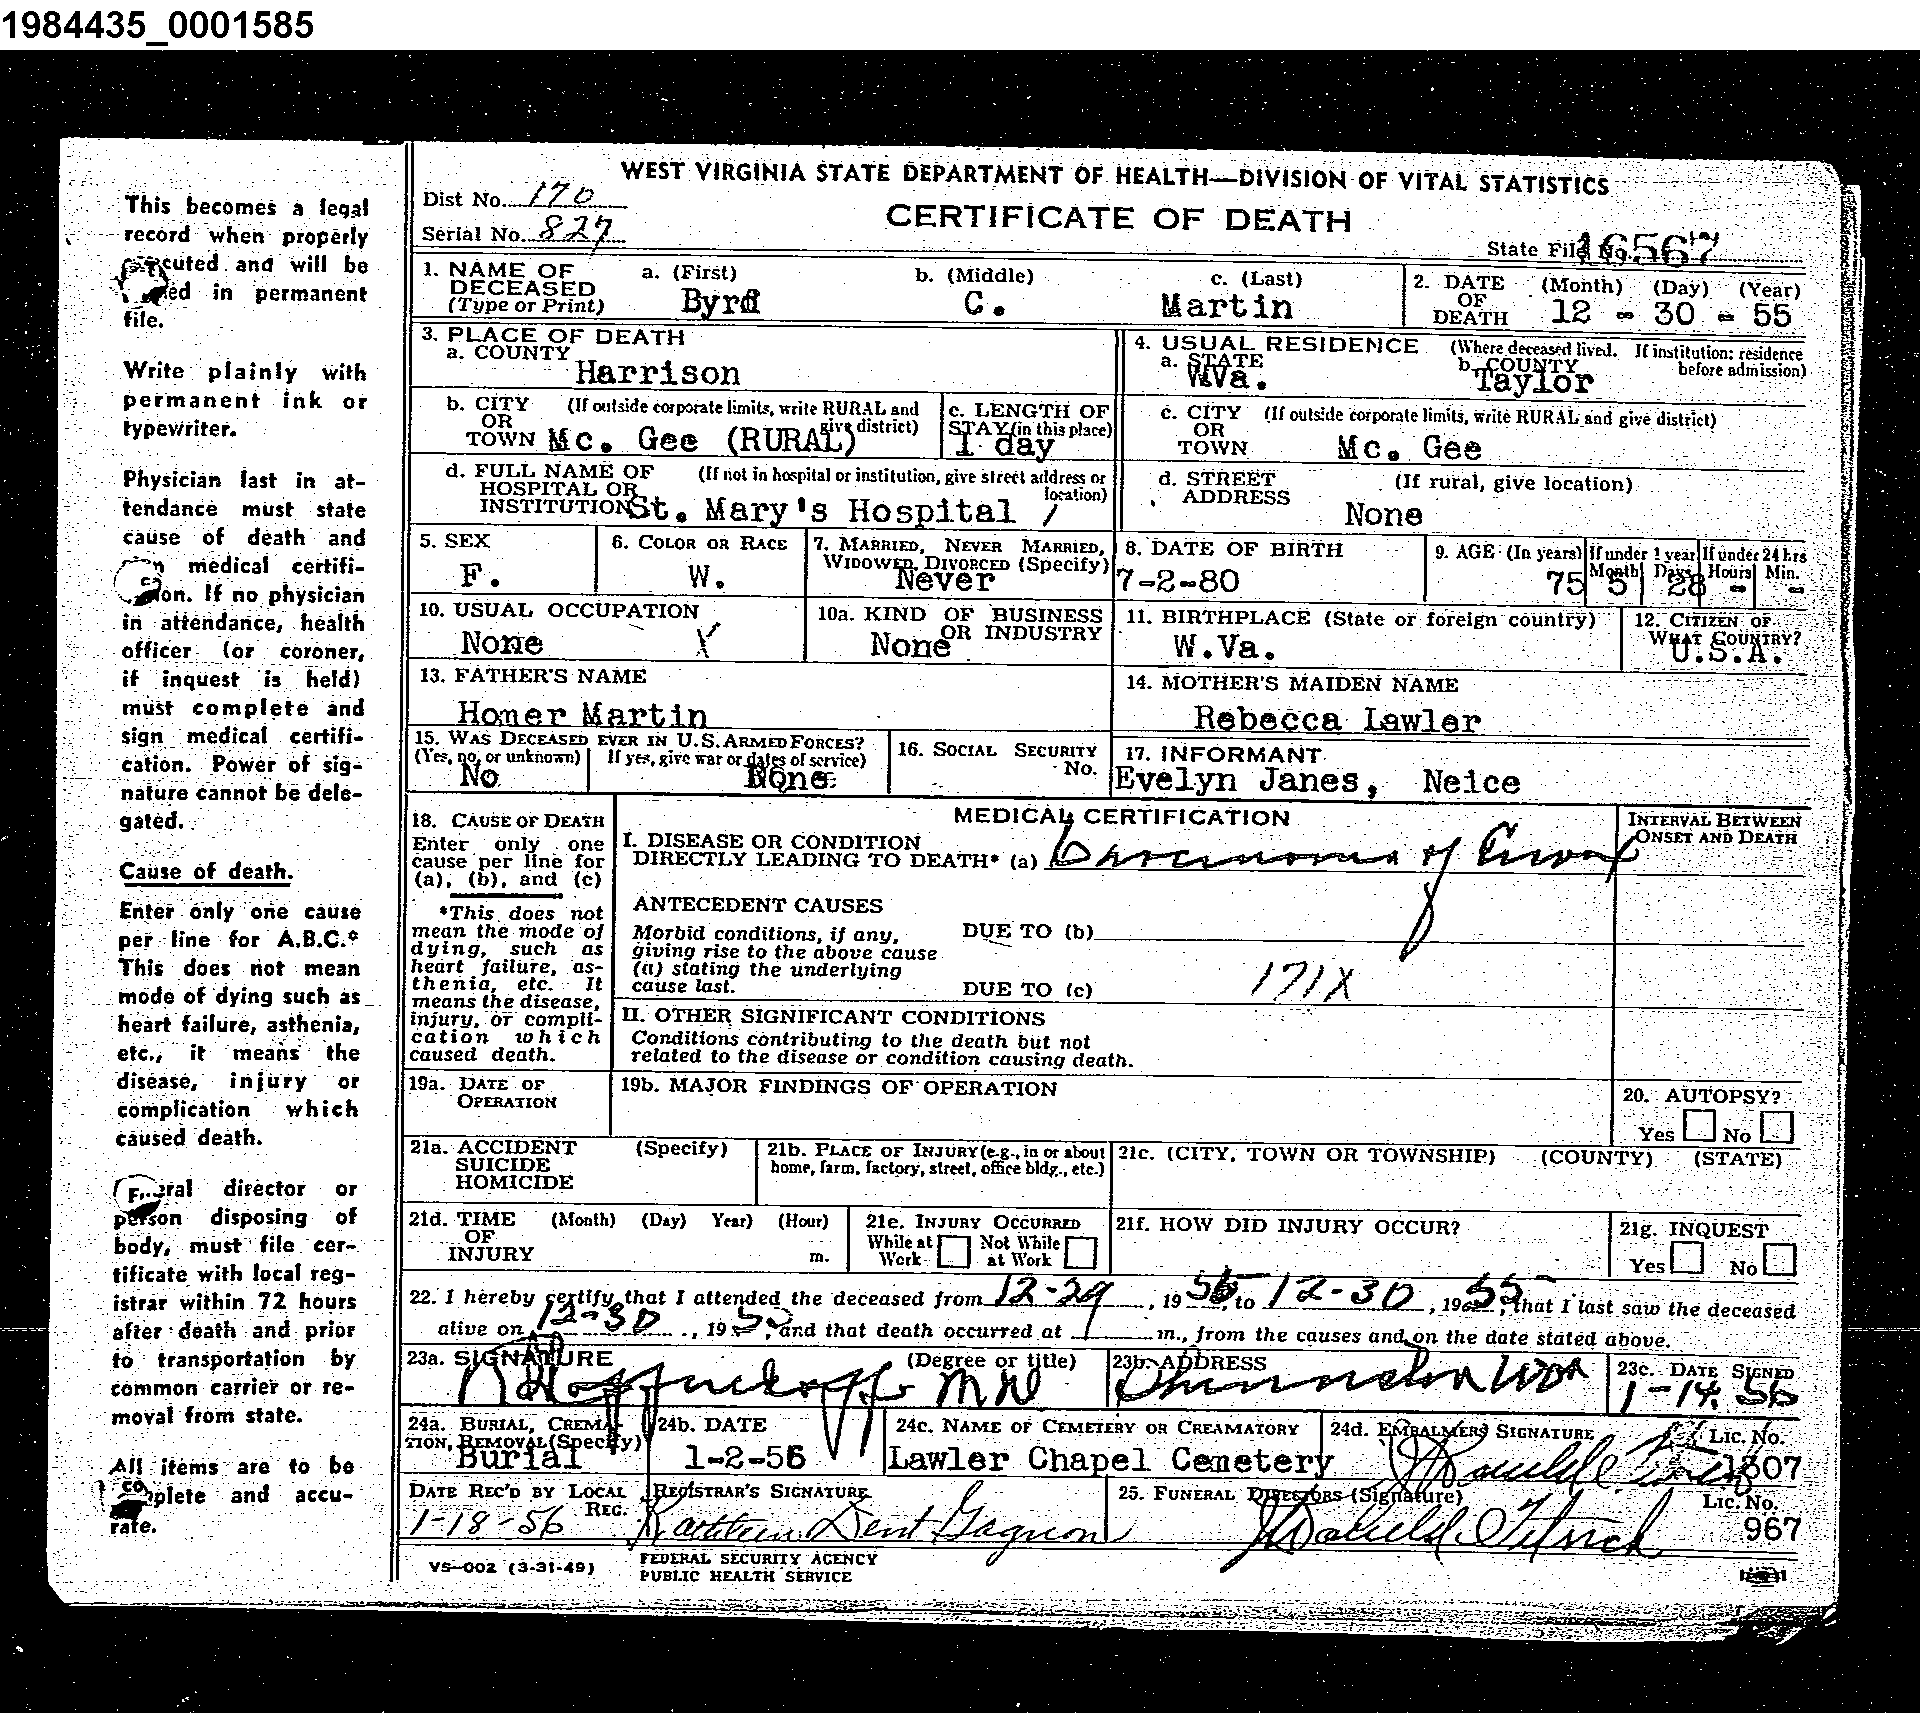 1984435_0001585
WEST VIRGINIA STATE DEPARTMENT OF HEALTH—DIVISION OF VITAL STATISTICS
Dist No. 170
CERTIFICATE OF DEATH
Serial No. 827
State File No. 16567
1. NAME OF DECEASED (Type or Print) a. (First) Byrd b. (Middle) C. c. (Last) Martin
2. DATE OF DEATH (Month) (Day) (Year) 12 - 30 - 55
3. PLACE OF DEATH
a. COUNTY Harrison
4. USUAL RESIDENCE (Where deceased lived. If institution: residence before admission)
a. STATE WVa. b. COUNTY Taylor
b. CITY OR TOWN (If outside corporate limits, write RURAL and give district) Mc. Gee (RURAL)
c. LENGTH OF STAY (in this place) 1 day
c. CITY OR TOWN (If outside corporate limits, write RURAL and give district) Mc. Gee
d. FULL NAME OF HOSPITAL OR INSTITUTION (If not in hospital or institution, give street address or location) St. Mary's Hospital /
d. STREET ADDRESS (If rural, give location) None
5. SEX F.
6. COLOR OR RACE W.
7. MARRIED, NEVER MARRIED, WIDOWED, DIVORCED (Specify) Never
8. DATE OF BIRTH 7-2-80
9. AGE (In years) 75 If under 1 year Month 5 Days 28 If under 24 hrs Hours - Min. -
10. USUAL OCCUPATION None X
10a. KIND OF BUSINESS OR INDUSTRY None
11. BIRTHPLACE (State or foreign country) W.Va.
12. CITIZEN OF WHAT COUNTRY? U.S.A.
13. FATHER'S NAME Homer Martin
14. MOTHER'S MAIDEN NAME Rebecca Lawler
15. WAS DECEASED EVER IN U.S. ARMED FORCES? (Yes, no, or unknown) No If yes, give war or dates of service) None
16. SOCIAL SECURITY No.
17. INFORMANT Evelyn Janes, Neice
18. CAUSE OF DEATH
Enter only one cause per line for (a), (b), and (c)
*This does not mean the mode of dying, such as heart failure, asthenia, etc. It means the disease, injury, or complication which caused death.
MEDICAL CERTIFICATION
INTERVAL BETWEEN ONSET AND DEATH
I. DISEASE OR CONDITION DIRECTLY LEADING TO DEATH* (a) Carcinoma of Cervix
ANTECEDENT CAUSES
Morbid conditions, if any, giving rise to the above cause (a) stating the underlying cause last.
DUE TO (b)
DUE TO (c) 171X
II. OTHER SIGNIFICANT CONDITIONS
Conditions contributing to the death but not related to the disease or condition causing death.
19a. DATE OF OPERATION
19b. MAJOR FINDINGS OF OPERATION
20. AUTOPSY?
Yes No
21a. ACCIDENT SUICIDE HOMICIDE (Specify)
21b. PLACE OF INJURY (e.g., in or about home, farm, factory, street, office bldg., etc.)
21c. (CITY, TOWN OR TOWNSHIP) (COUNTY) (STATE)
21d. TIME OF INJURY (Month) (Day) Year) (Hour) m.
21e. INJURY OCCURRED While at Work Not While at Work
21f. HOW DID INJURY OCCUR?
21g. INQUEST Yes No
22. I hereby certify that I attended the deceased from 12-29, 1955, to 12-30, 1955, that I last saw the deceased
alive on 12-30, 1955, and that death occurred at m., from the causes and on the date stated above.
23a. SIGNATURE (Degree or title) MD
23b. ADDRESS Shinnston WVa
23c. DATE SIGNED 1-14-56
24a. BURIAL, CREMATION, REMOVAL (Specify) Burial
24b. DATE 1-2-56
24c. NAME OF CEMETERY OR CREAMATORY Lawler Chapel Cemetery
24d. EMBALMERS SIGNATURE Lic. No. 1807
DATE REC'D BY LOCAL REG. 1-18-56
REGISTRAR'S SIGNATURE Kathleen Dent Gagnon
25. FUNERAL DIRECTORS (Signature) Lic. No. 967
VS-002 (3-31-49)
FEDERAL SECURITY AGENCY
PUBLIC HEALTH SERVICE
This becomes a legal
record when properly
executed and will be
in permanent
file.
Write plainly with
permanent ink or
typewriter.
Physician last in at-
tendance must state
cause of death and
medical certifi-
cation. If no physician
in attendance, health
officer (or coroner,
if inquest is held)
must complete and
sign medical certifi-
cation. Power of sig-
nature cannot be dele-
gated.
Cause of death.
Enter only one cause
per line for A.B.C.*
This does not mean
mode of dying such as
heart failure, asthenia,
etc., it means the
disease, injury or
complication which
caused death.
Funeral director or
person disposing of
body, must file cer-
tificate with local reg-
istrar within 72 hours
after death and prior
to transportation by
common carrier or re-
moval from state.
All items are to be
complete and accu-
rate.